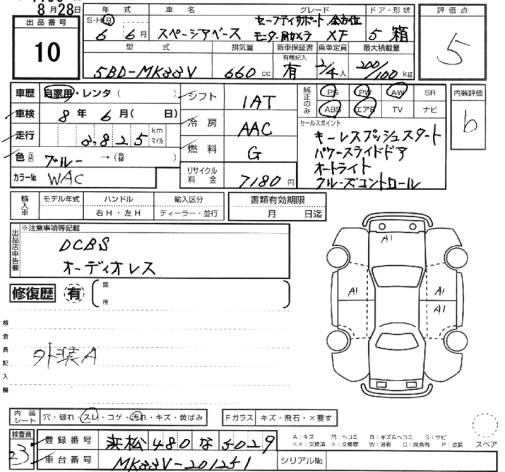 8月28日
出品番号 10
年式 車名 グレード ドア・形状
S・H・R 6年 6月 スペーシアベース セーフティサポート 全方位モニター用カメラ XF 5 箱
型式 排気量 新車保証書 乗車定員 最大積載量
有無記入
5BD-MK33V 660cc 有 2/4人 200/100kg
評価点 5
車歴 自家用・レンタ( )
車検 8年6月( 日)
走行 2,825 km マイル
色 ブルー →( )
カラーNo. WAC
シフト 1AT
冷房 AAC
燃料 G
リサイクル料金 7180円
純正のみ PS PW AW SR
ABS エアB TV ナビ
内装評価 b
セールスポイント
キーレスプッシュスタート
パワースライドドア
オートライト
クルーズコントロール
輸入車 モデル年式 ハンドル 輸入区分
右H・左H ディーラー・並行
書類有効期限
月 日迄
出品店申告欄
※注意事項等記載
DCBS
オーディオレス
修復歴 有 箇所
検査員記入欄
外装A
A1
A1 A1
A1
内装シート 穴・破れ・スレ・コゲ・汚れ・キズ・黄ばみ
Fガラス キズ・飛石・×要す
検査員 23
登録番号 浜松480な5029
車台番号 MK33V-201251
シリアルNo.
A:キズ U:ヘコミ B:キズ&ヘコミ S:サビ
スペア